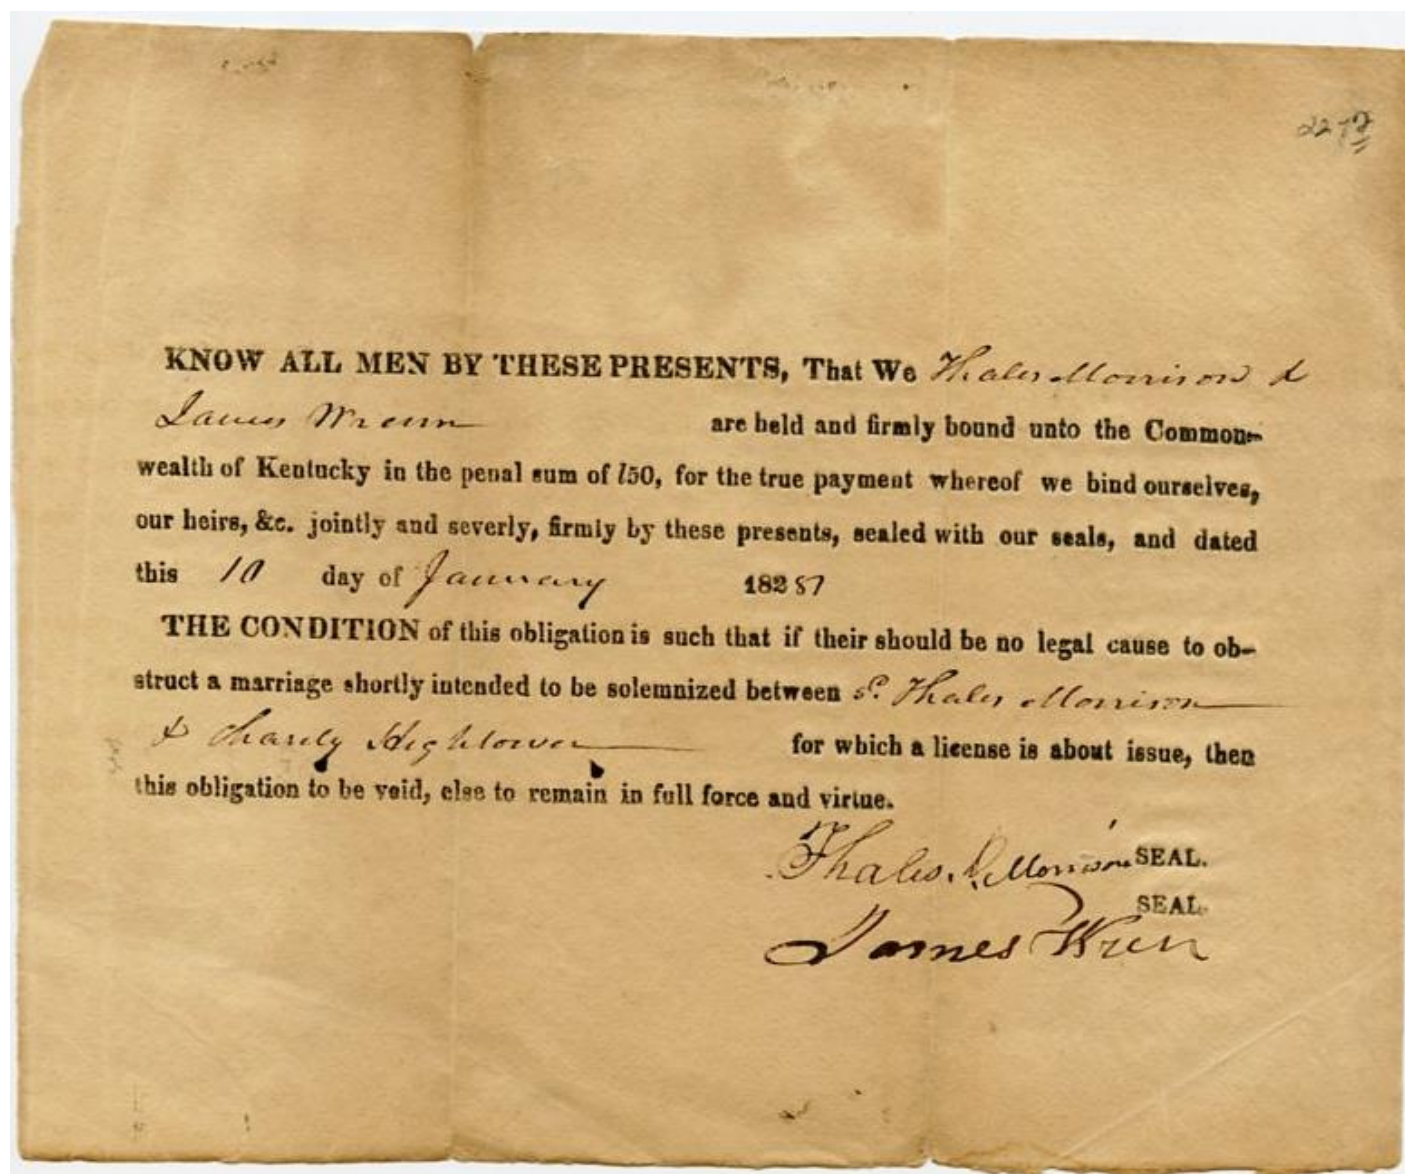 KNOW ALL MEN BY THESE PRESENTS, That We Thales Morrison &
James Wrenn are held and firmly bound unto the Common-
wealth of Kentucky in the penal sum of 150, for the true payment whereof we bind ourselves,
our heirs, &c. jointly and severly, firmly by these presents, sealed with our seals, and dated
this 10 day of January 182
THE CONDITION of this obligation is such that if their should be no legal cause to ob-
struct a marriage shortly intended to be solemnized between sd. Thales Morrison
& Hightower for which a license is about issue, then
this obligation to be void, else to remain in full force and virtue.
Thales Morrison SEAL.
SEAL.
James Wren